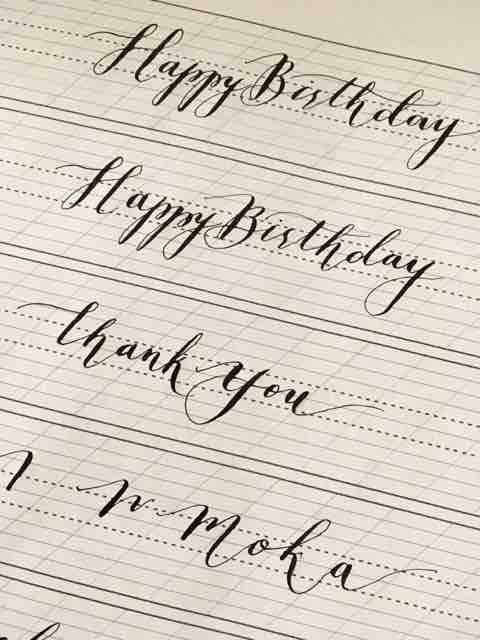 Happy Birthday
Happy Birthday
thank you
Moka